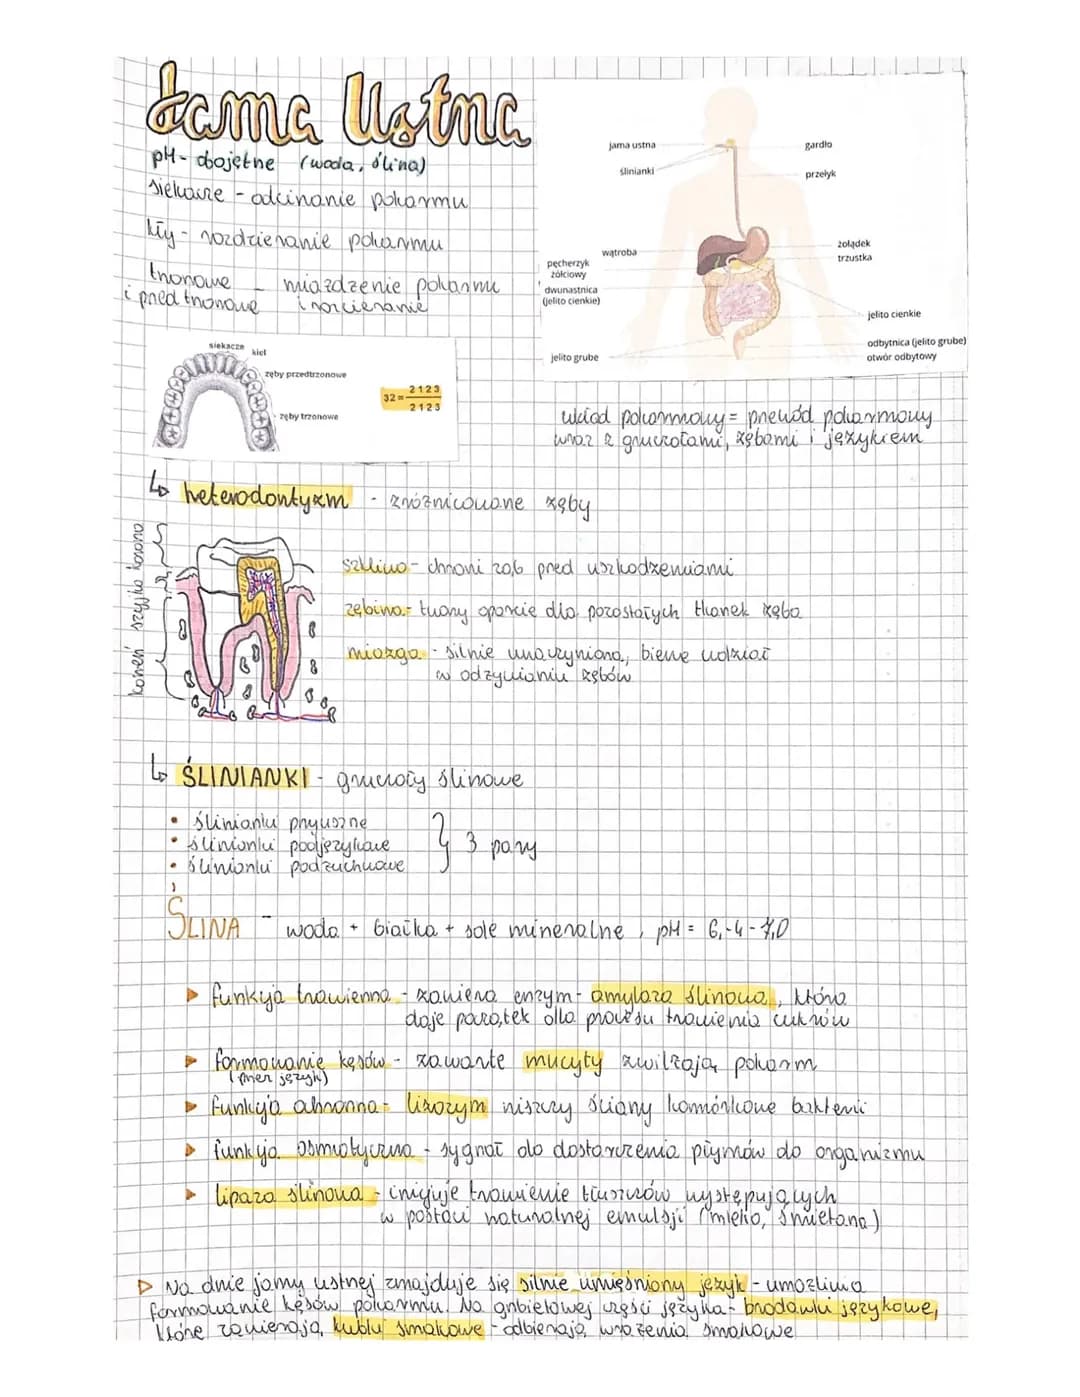 Jama Ustna
pH - obojętne (woda, ślina)
siekacze - odcinanie pokarmu
kły - rozdzieranie pokarmu
trzonowe i przedtrzonowe - miażdżenie pokarmu i rozcieranie
jama ustna
ślinianki
gardło
przełyk
wątroba
pęcherzyk żółciowy
dwunastnica (jelito cienkie)
żołądek
trzustka
jelito cienkie
jelito grube
odbytnica (jelito grube)
otwór odbytowy
siekacze
kieł
zęby przedtrzonowe
zęby trzonowe
32 = 2123
2123
układ pokarmowy = przewód pokarmowy
wraz z gruczołami, zębami i językiem
↳ heterodontyzm - zróżnicowane zęby
korzeń szyjka korona
szkliwo - chroni ząb przed uszkodzeniami
zębina - tworzy oparcie dla pozostałych tkanek zęba
miazga - silnie unaczyniona, bierze udział
w odżywianiu zębów
↳ ŚLINIANKI - gruczoły ślinowe
• ślinianki przyuszne
• ślinianki podjęzykowe
• ślinianki podżuchwowe
} 3 pary
ŚLINA - woda + białka + sole mineralne, pH = 6,-4-7,0
▸ funkcja trawienna - zawiera enzym - amylaza ślinowa, która
daje początek dla procesu trawienia cukrów
▸ formowanie kęsów - zawarte mucyty zwilżają pokarm
(przez język)
▸ funkcja ochronna - lizozym niszczy ściany komórkowe bakterii
▸ funkcja osmotyczna - sygnał do dostarczenia płynów do organizmu
▸ lipaza ślinowa - inicjuje trawienie tłuszczów występujących
w postaci naturalnej emulsji (mleko, śmietana)
▷ Na dnie jamy ustnej znajduje się silnie umięśniony język - umożliwia
formowanie kęsów pokarmu. Na grzbietowej części języka - brodawki językowe,
które zawierają kubki smakowe - odbierają wrażenia smakowe